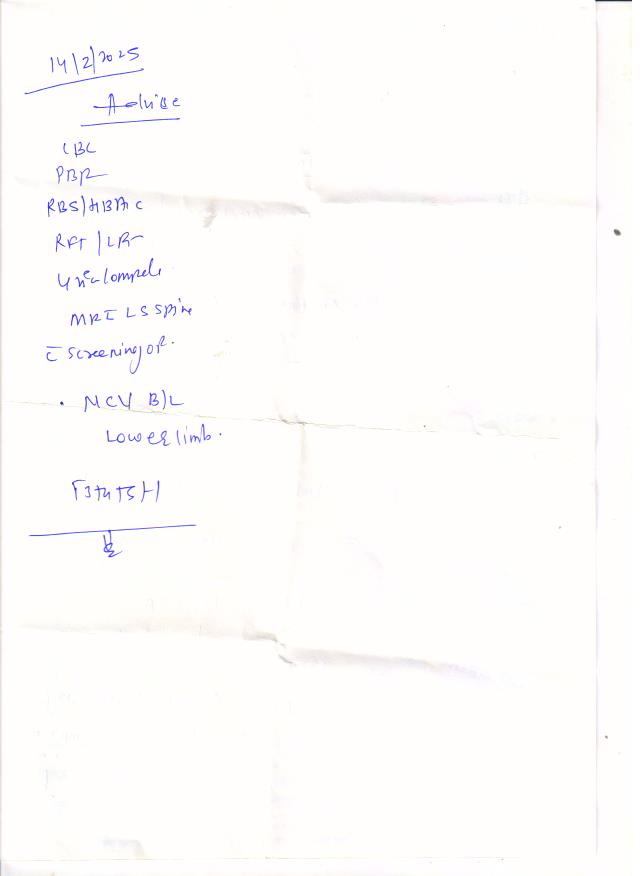 14/2/2025
Advise
CBC
PBR
RBS/HBA1C
RFT/LFT
Uric Complete
MRI LS Spine
c̄ Screening of.
. NCV B/L
Lower limb.
T3T4TSH